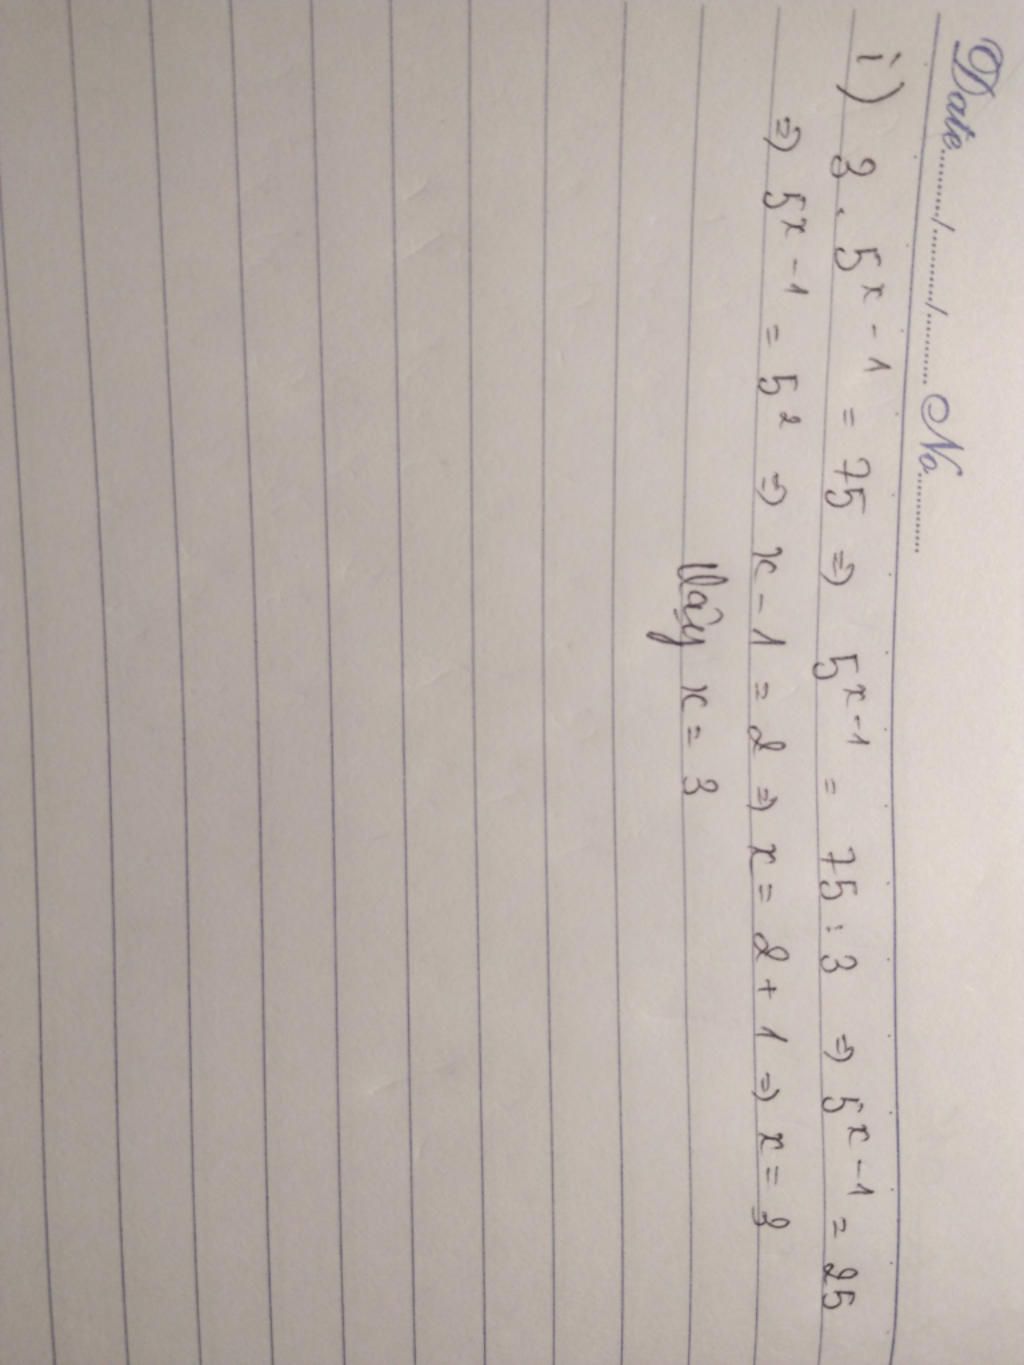 Date........./........./......... No...........
i) 3 . 5^{x - 1} = 75 => 5^{x - 1} = 75 : 3 => 5^{x - 1} = 25
=> 5^{x - 1} = 5^2 => x - 1 = 2 => x = 2 + 1 => x = 3
Vậy x = 3